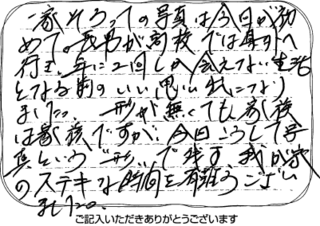 一家そろっての写真は今日が初
めて。長男が高校では県外へ
行き、年に2回しか会えない生活
となる前のいい思い出になり
ました。形が無くても家族
は家族ですが、今日こうして写
真という形で残す、我が家
のステキな時間を有難うござい
ました。
ご記入いただきありがとうございます